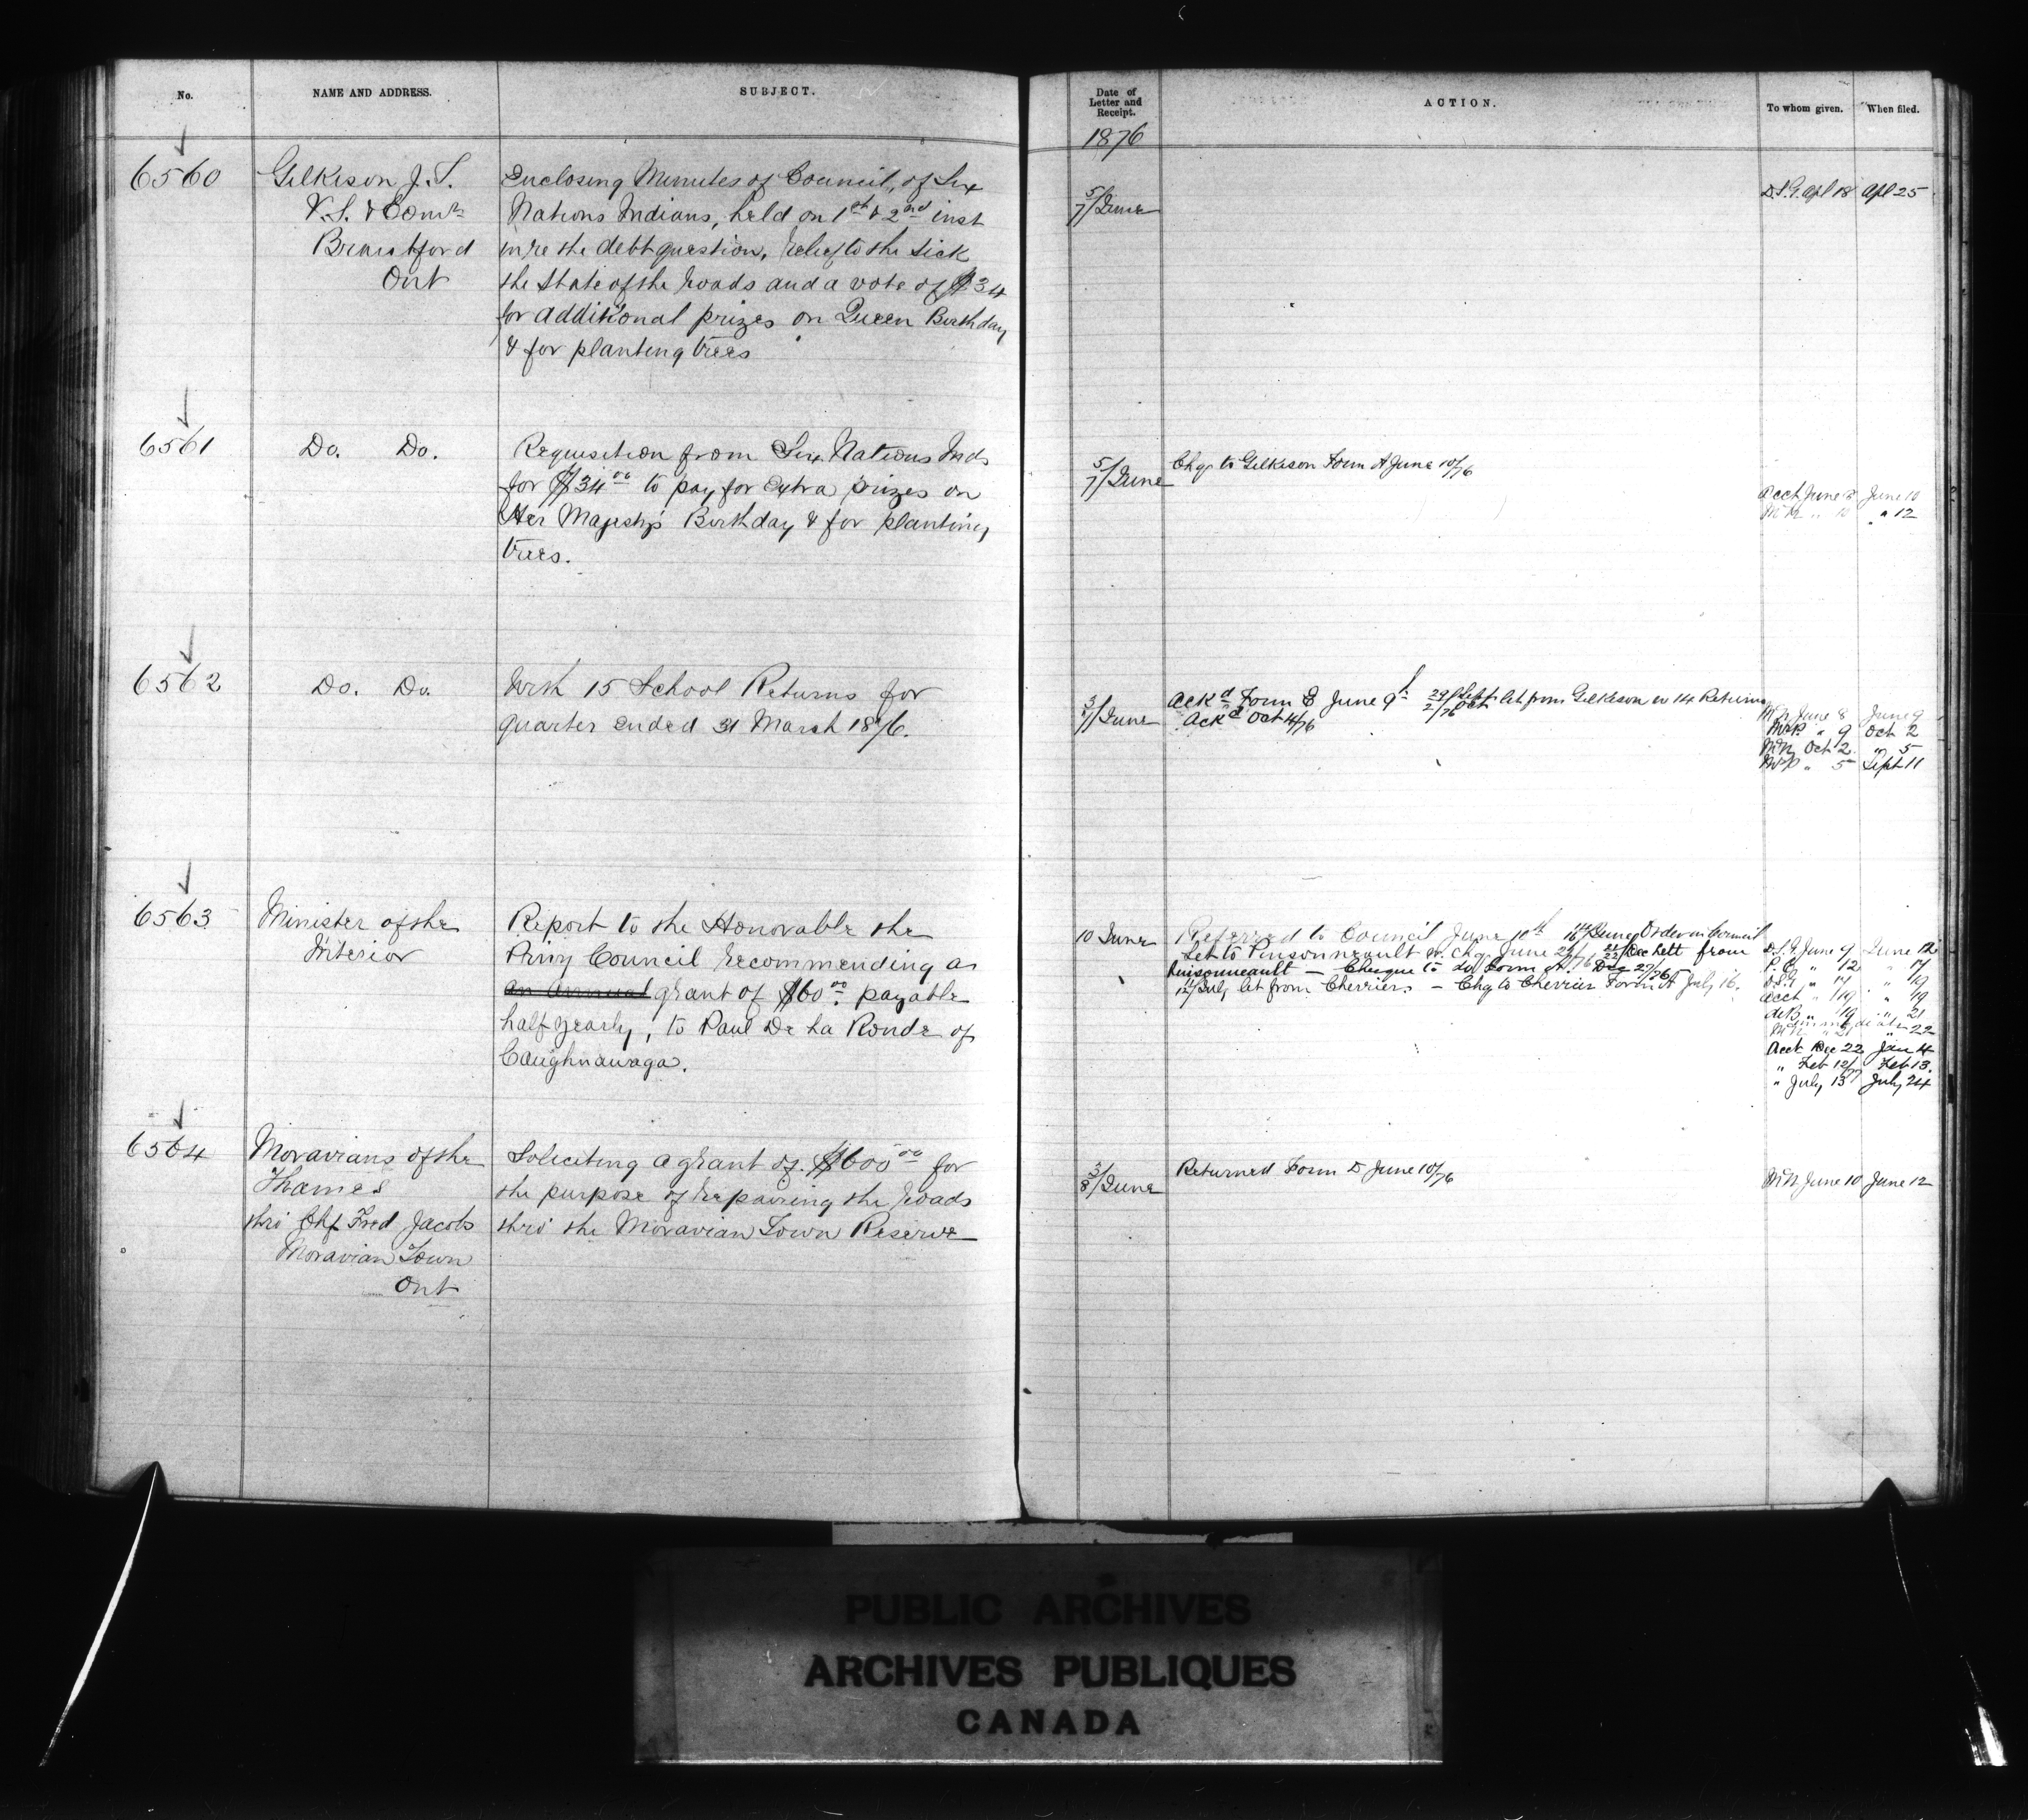 No.
NAME AND ADDRESS.
SUBJECT.
6560
Gilkison J. T.
V. S. & Comr
Brantford
Ont
Enclosing Minutes of Council, of Six
Nations Indians, held on 1st & 2nd inst
in re the debt question, relief to the sick
the State of the roads and a vote of $34
for additional prizes on Queen Birthday
& for planting trees
6561
Do. Do.
Requisition from Six Nations Inds
for $34.00 to pay for extra prizes on
Her Majesty's Birthday & for planting
trees.
6562
Do. Do.
With 15 School Returns for
quarter ended 31 March 1876.
6563
Minister of the
Interior
Report to the Honorable the
Privy Council recommending a
an annual grant of $60.00 payable
half yearly, to Paul De La Ronde of
Caughnawaga.
6564
Moravians of the
Thames
thro' Chf Fred Jacobs
Moravian Town
Ont
Soliciting a grant of $600.00 for
the purpose of repairing the roads
thro' the Moravian Town Reserve
Date of
Letter and
Receipt.
ACTION.
To whom given.
When filed.
1876
5/7 June
Apl 18 Apl 25
5/7 June
Chq. to Gilkison Form A June 10/76
Acct June 8 June 10
" 12
3/7 June
Ackd Form E June 9th 29/2 Sept/Oct let from Gilkison w 14 Returns
Ackd Oct 4/76
June 8 June 9
" 9 Oct 2
Oct 2 " 5
" 5 Sept 11
10 June
Referred to Council June 10th 14/16 June Order in Council
Let to Pinsonneault w. Chq. June 22/76 Dec lett from
Pinsonneault — Cheque to do Form A. Dec 27/76
11/12 July let from Cherrier. — Chq to Cherrier Form A July 16.
D.S.G. June 9 June 12
P.C. " 12 " 17
" 17 " 19
Acct " 19 " 19
" 19 " 21
" 21 " 22
Acct Dec 22 Jan 4
" Feb 12/77 Feb 13.
" July 13 July 24
3/8 June
Returned Form D June 10/76
June 10 June 12
PUBLIC ARCHIVES
ARCHIVES PUBLIQUES
CANADA